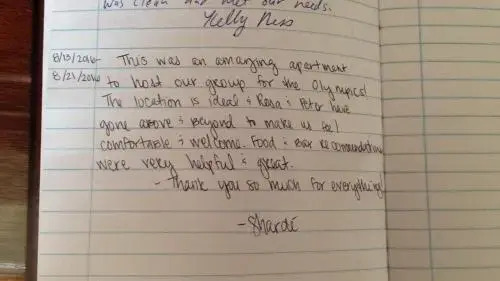 was clean and met our needs.
Kelly Ness
8/13/2016- This was an amazing apartment
8/21/2016 to host our group for the Olympics!
The location is ideal & Rosa & Peter have
gone above & beyond to make us feel
comfortable & welcome. Food & Bar recommendations
were very helpful & great.
- Thank you so much for everything!
- Shardé